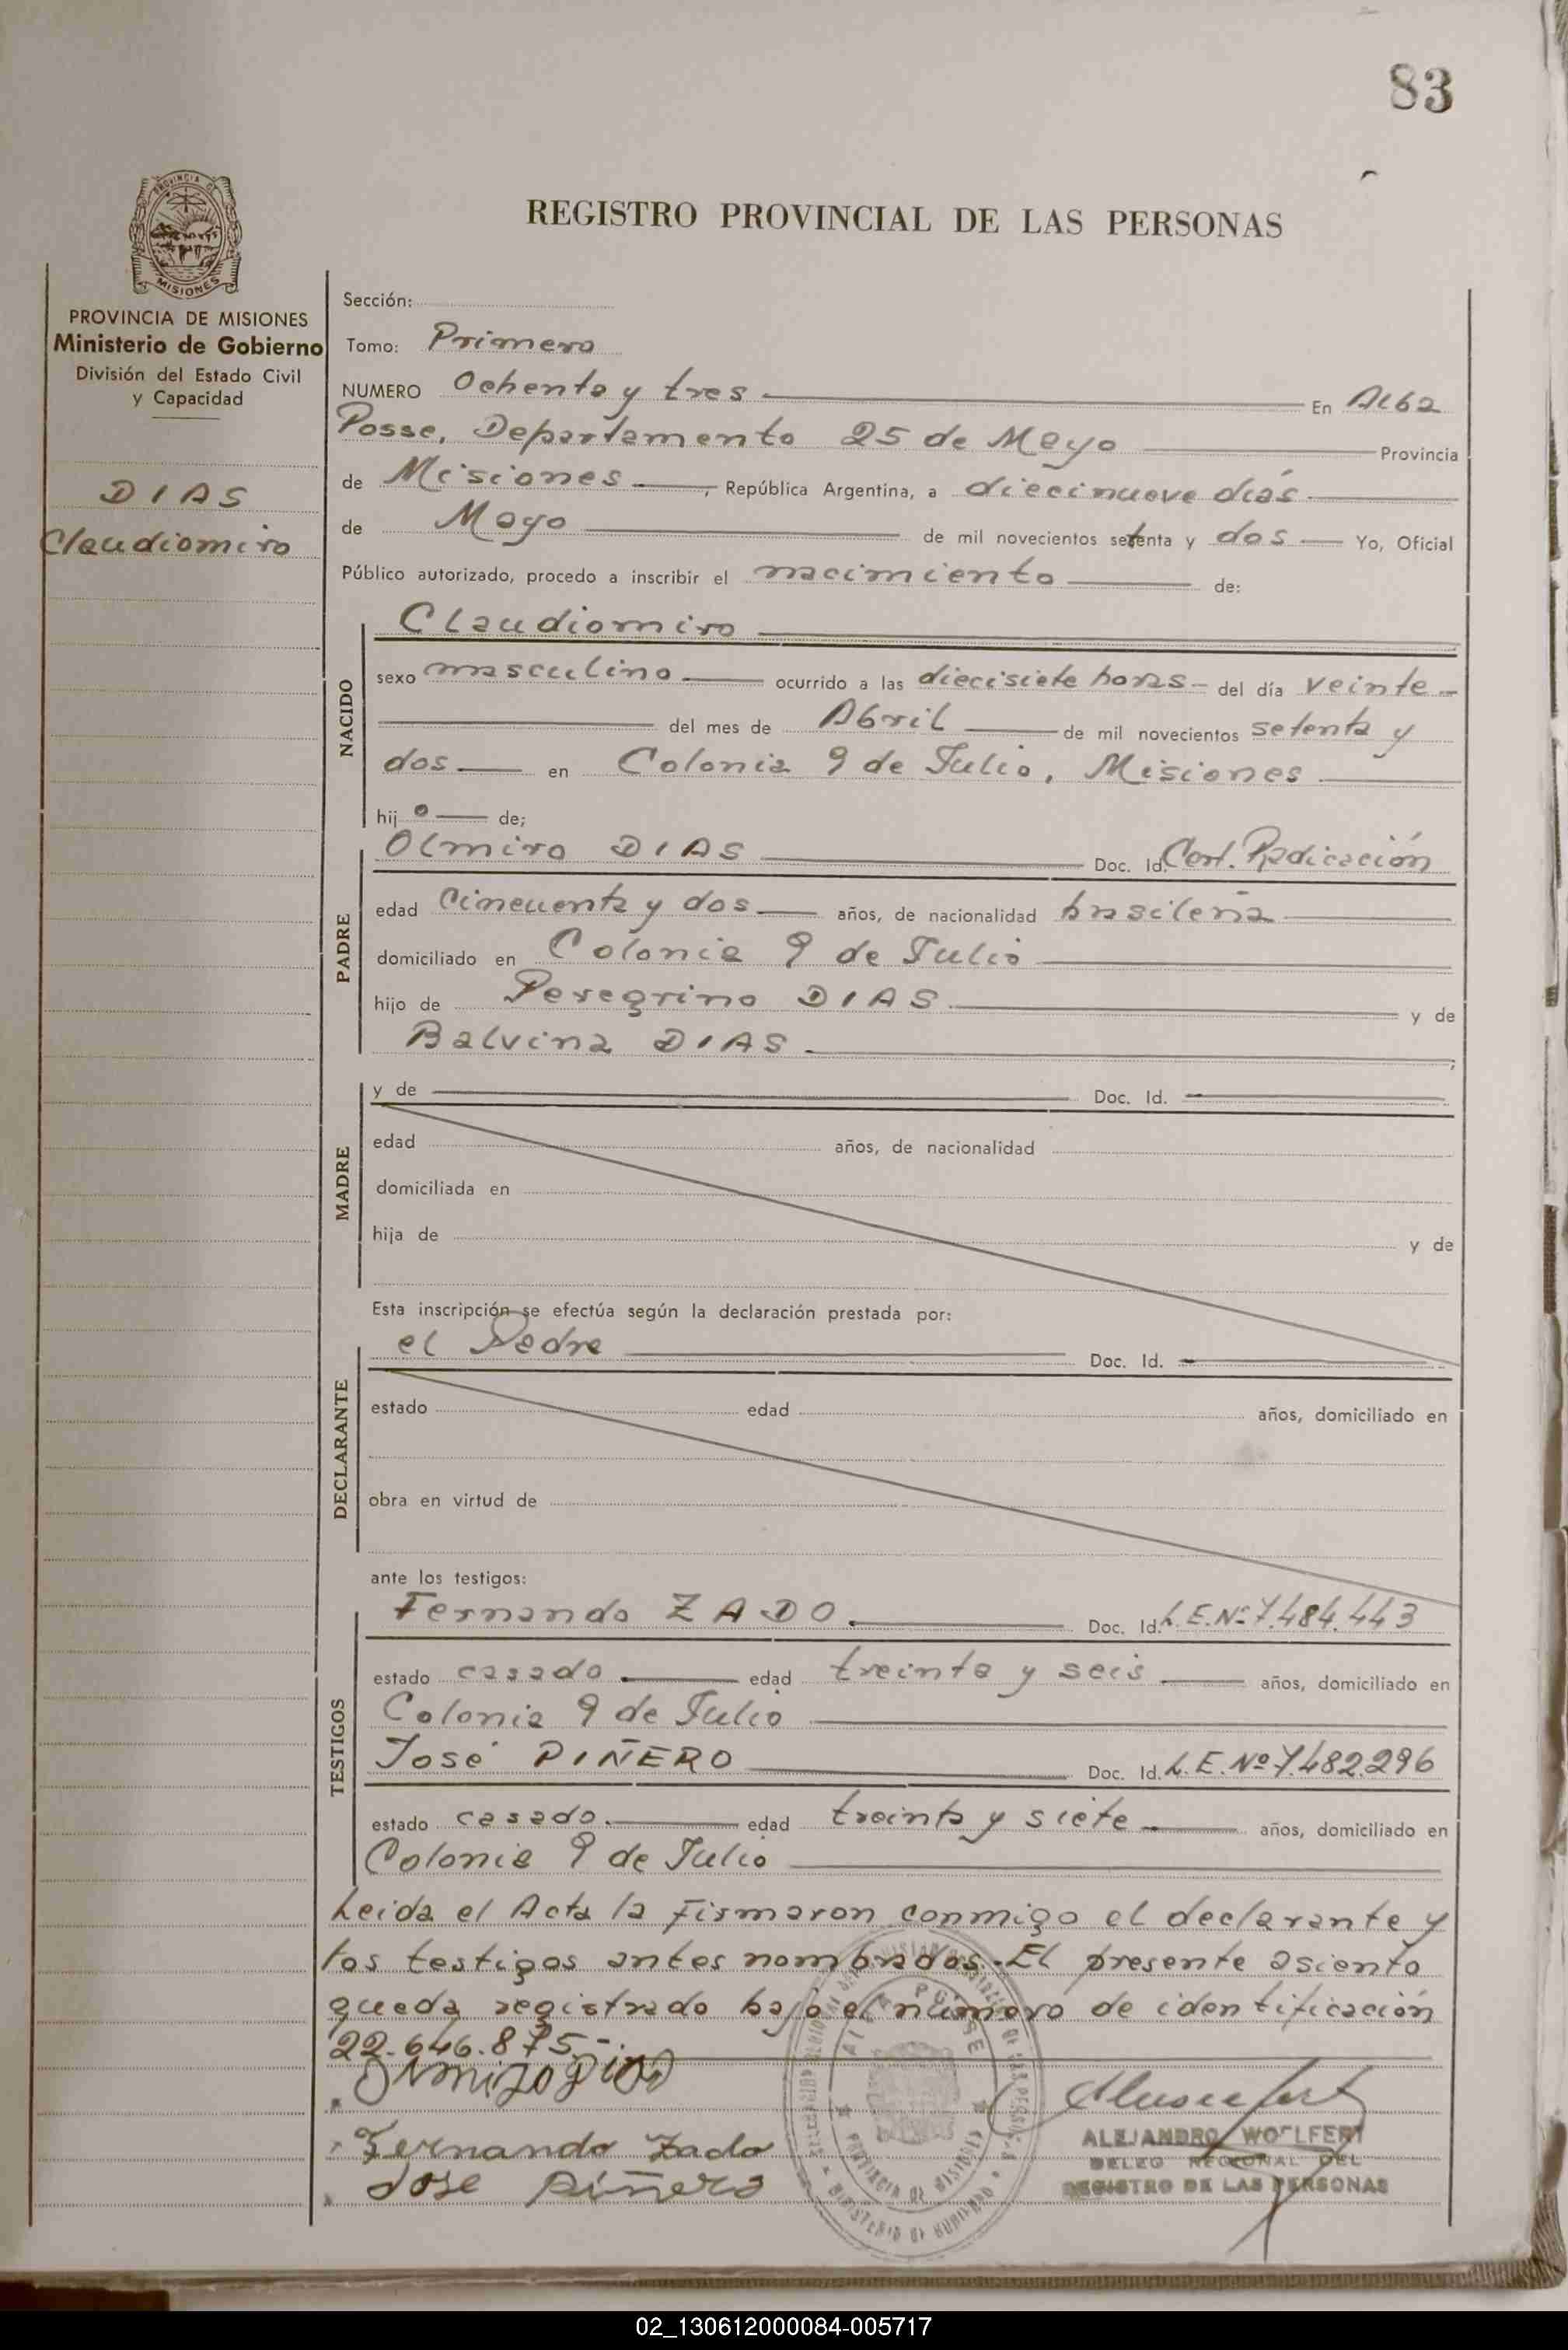 83
PROVINCIA DE
MISIONES
REGISTRO PROVINCIAL DE LAS PERSONAS
PROVINCIA DE MISIONES
Ministerio de Gobierno
División del Estado Civil
y Capacidad
DIAS
Claudiomiro
Sección:
Tomo: Primero
NUMERO Ochenta y tres En Alba
Posse, Departamento 25 de Mayo Provincia
de Misiones, República Argentina, a diecinueve días
de Mayo de mil novecientos setenta y dos Yo, Oficial
Público autorizado, procedo a inscribir el nacimiento de:
NACIDO
Claudiomiro
sexo masculino ocurrido a las diecisiete horas del día veinte
del mes de Abril de mil novecientos setenta y
dos en Colonia 9 de Julio, Misiones
hijo de;
PADRE
Olmiro DIAS Doc. Id. Cert. Radicación
edad cincuenta y dos años, de nacionalidad brasileña
domiciliado en Colonia 9 de Julio
hijo de Peregrino DIAS y de
Balvina DIAS
MADRE
y de Doc. Id.
edad años, de nacionalidad
domiciliada en
hija de y de
Esta inscripción se efectúa según la declaración prestada por:
DECLARANTE
el Padre Doc. Id.
estado edad años, domiciliado en
obra en virtud de
ante los testigos:
TESTIGOS
Fernando ZADO. Doc. Id. L.E.Nº 7.484.443
estado casado edad treinta y seis años, domiciliado en
Colonia 9 de Julio
José PIÑERO Doc. Id. L.E.Nº 7.482.296
estado casado. edad treinta y siete años, domiciliado en
Colonia 9 de Julio
Leida el Acta la firmaron conmigo el declarante y
los testigos antes nombrados.-El presente asiento
queda registrado bajo el número de identificación
22.646.875.-
Olmiro Dias
Fernando Zado
Jose Piñero
ALBA POSSE
PROVINCIA DE MISIONES
MINISTERIO DE GOBIERNO
ALEJANDRO WOLFERT
DELEG REGIONAL DEL
REGISTRO DE LAS PERSONAS
02_130612000084-005717